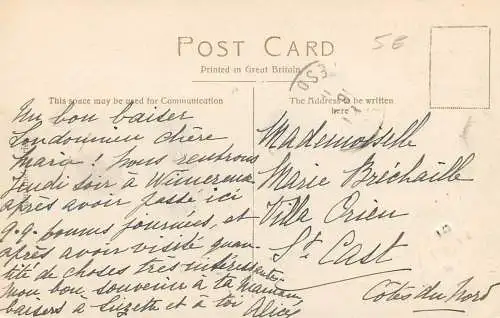 5E
POST CARD
Printed in Great Britain
This space may be used for Communication
The Address to be written
here
Un bon baiser
Londonnien chère
Maria ! Nous rentrons
Jeudi soir à Wimereux
après avoir passé ici
q.q. bonnes journées, et
après avoir visité quan
tité de choses très intéressantes
Mon bon souvenir à ta Maman,
baisers à Suzette et à toi Alice
Mademoiselle
Marie Bréchaille
Villa Orien
St Cast
Côtes du Nord